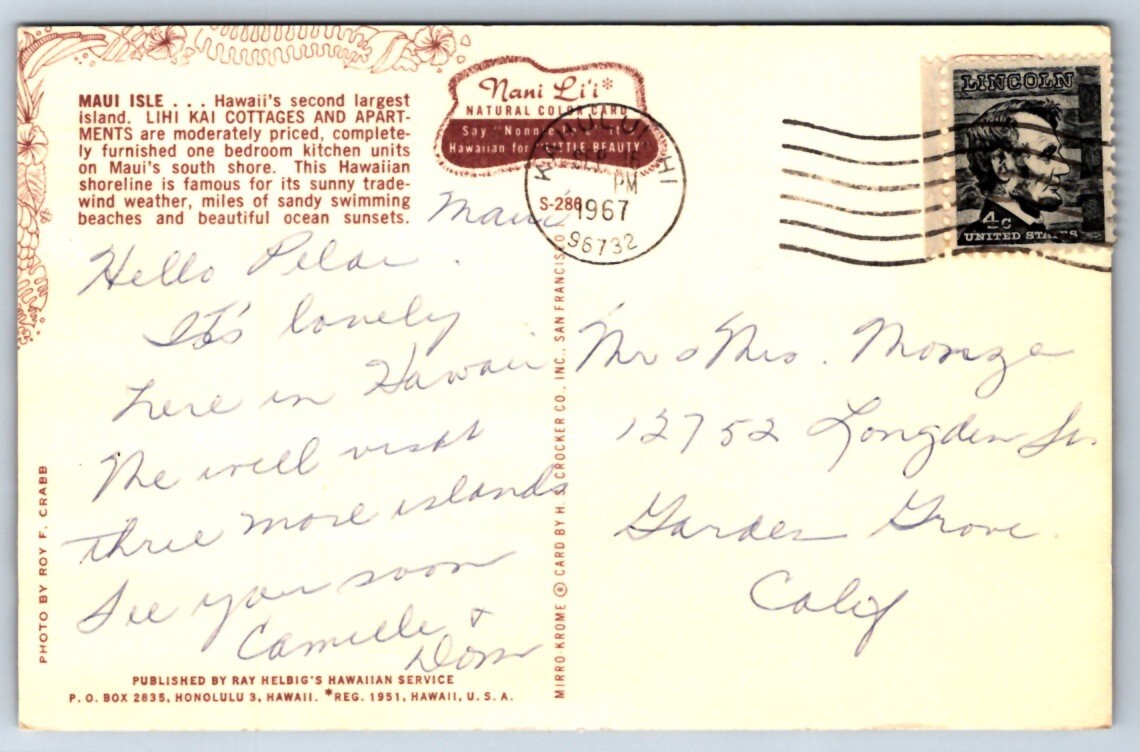 MAUI ISLE . . . Hawaii's second largest
island. LIHI KAI COTTAGES AND APART-
MENTS are moderately priced, complete-
ly furnished one bedroom kitchen units
on Maui's south shore. This Hawaiian
shoreline is famous for its sunny trade-
wind weather, miles of sandy swimming
beaches and beautiful ocean sunsets.
Nani Li'i*
NATURAL COLOR CARD
Say "Nonnie
Hawaiian for "LITTLE BEAUTY"
S-286
KAHULUI HI
SEP 16
PM
1967
96732
LINCOLN
4c
UNITED STATES
Maui
Hello Pilar.
It's lovely
here in Hawaii
We will visit
three more islands
See you soon
Camille &
Dom
Mr & Mrs. Monze
12752 Longden St.
Garden Grove.
Calif
PHOTO BY ROY F. CRABB
MIRRO KROME ® CARD BY H. S. CROCKER CO., INC., SAN FRANCISCO
PUBLISHED BY RAY HELBIG'S HAWAIIAN SERVICE
P. O. BOX 2835, HONOLULU 3, HAWAII. *REG. 1951, HAWAII, U. S. A.